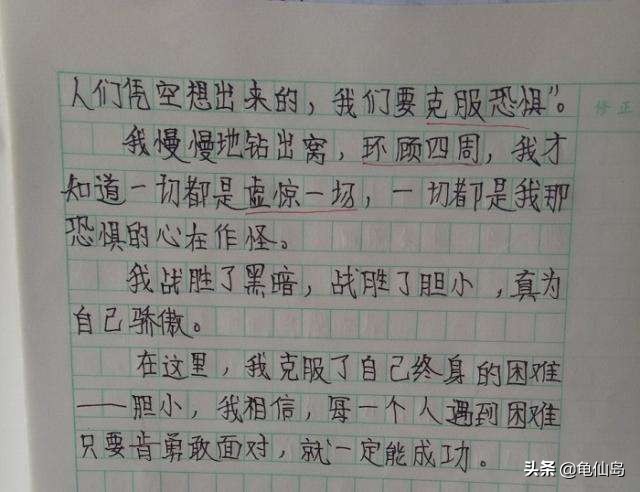 人们凭空想出来的，我们要克服恐惧”。
我慢慢地钻出窝，环顾四周，我才
知道一切都是虚惊一场，一切都是我那
恐惧的心在作怪。
我战胜了黑暗，战胜了胆小，真为
自己骄傲。
在这里，我克服了自己终身的困难
——胆小，我相信，每一个人遇到困难
只要肯勇敢面对，就一定能成功。
修正
头条 @龟仙岛